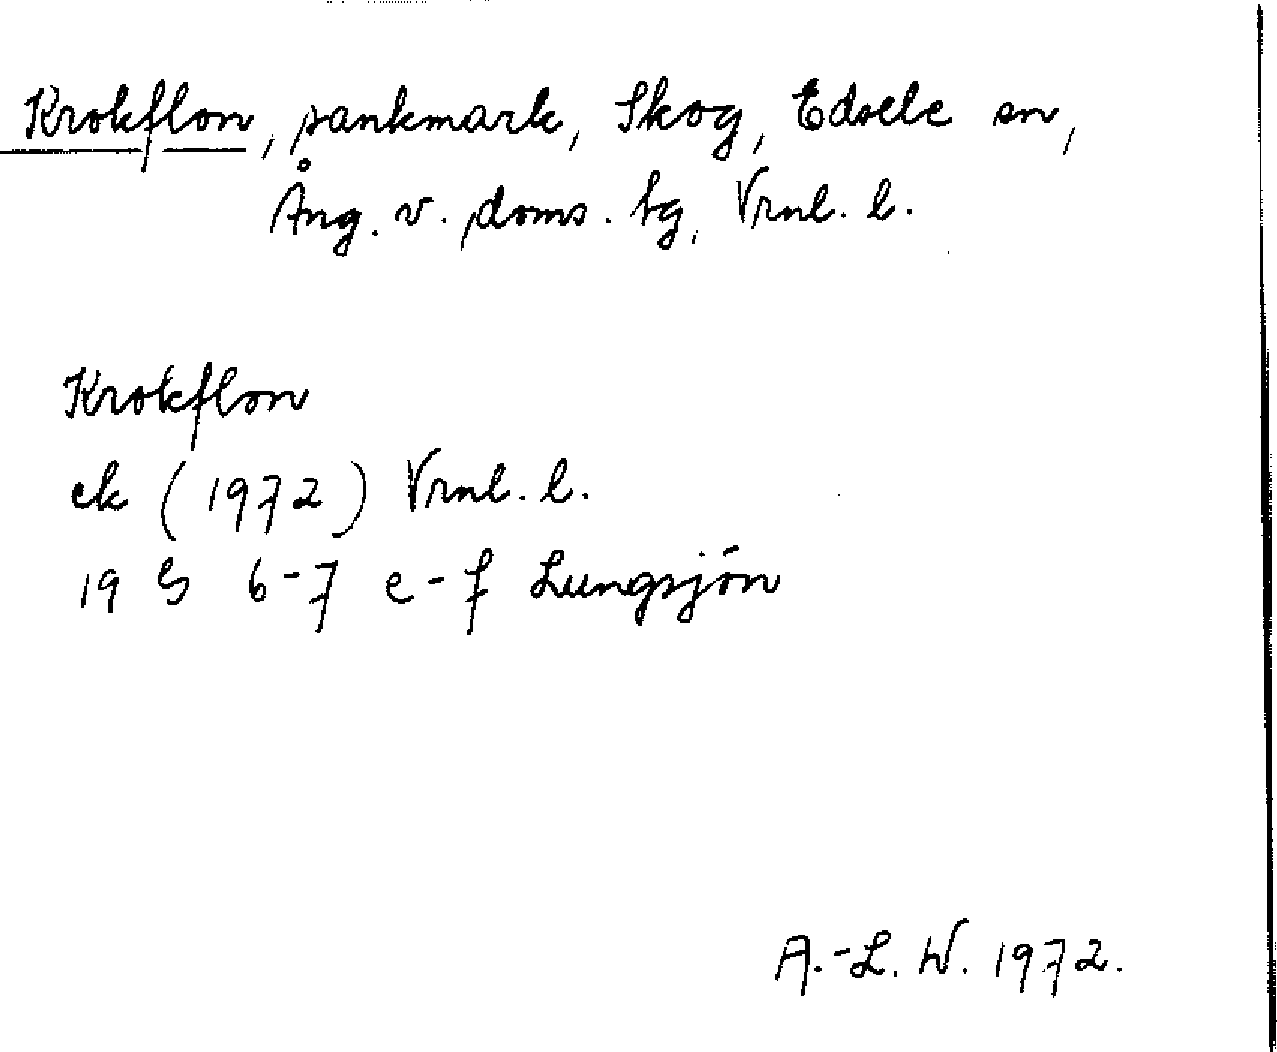 Krokflon, sankmark, Skog, Edsele sn,
Ång. v. doms. tg, Vrnl. l.
Krokflon
ek (1972) Vrnl. l.
19 G 6-7 e-f Lungsjön
A.-L. W. 1972.